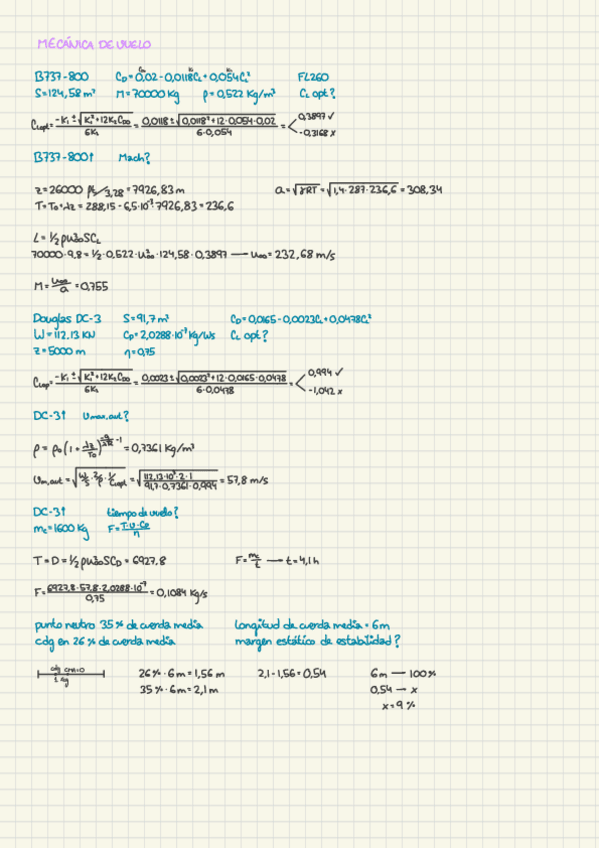 MECÁNICA DE VUELO
B737-800 C_D = 0,02 - 0,0118C_L + 0,054C_L² FL260
S = 124,58 m² M = 70000 Kg ρ = 0,522 Kg/m³ C_L opt?
C_Lopt = (-K₁ ± √(K₁² + 12K₂C_D0))/(6K₂) = (0,0118 ± √(0,0118² + 12·0,054·0,02))/(6·0,054) = < 0,3897 ✓
-0,3168 x
B737-800↑ Mach?
z = 26000 ft/3,28 = 7926,83 m a = √(γRT) = √(1,4·287·236,6) = 308,34
T = T₀ + λz = 288,15 - 6,5·10⁻³·7926,83 = 236,6
L = ½ρu∞²SC_L
70000·9,8 = ½·0,522·u∞²·124,58·0,3897 → u∞ = 232,68 m/s
M = u∞/a = 0,755
Douglas DC-3 S = 91,7 m² C_D = 0,0165 - 0,0023C_L + 0,0478C_L²
W = 112.13 KN C_p = 2,0288·10⁻⁷ Kg/Ws C_L opt?
z = 5000 m η = 0,75
C_Lop = (-K₁ ± √(K₁² + 12K₂C_D0))/(6K₂) = (0,0023 ± √(0,0023² + 12·0,0165·0,0478))/(6·0,0478) = < 0,994 ✓
-1,042 x
DC-3↑ u max,aut?
ρ = ρ₀(1 + λz/T₀)^(-g/λR - 1) = 0,7361 Kg/m³
u m,aut = √(W/S · 2/ρ · 1/C_Lopt) = √(112,13·10³·2·1/(91,7·0,7361·0,994)) = 57,8 m/s
DC-3↑ tiempo de vuelo?
m_c = 1600 Kg F = T·U·C_p/η
T = D = ½ρu∞²SC_D = 6927,8 F = m_c/t → t = 4,1 h
F = 6927,8·57,8·2,0288·10⁻⁷/0,75 = 0,1084 Kg/s
punto neutro 35 % de cuerda media longitud de cuerda media = 6m
cdg en 26 % de cuerda media margen estático de estabilidad?
26 % · 6 m = 1,56 m 2,1 - 1,56 = 0,54 6 m — 100 %
35 % · 6 m = 2,1 m 0,54 — x
x = 9 %